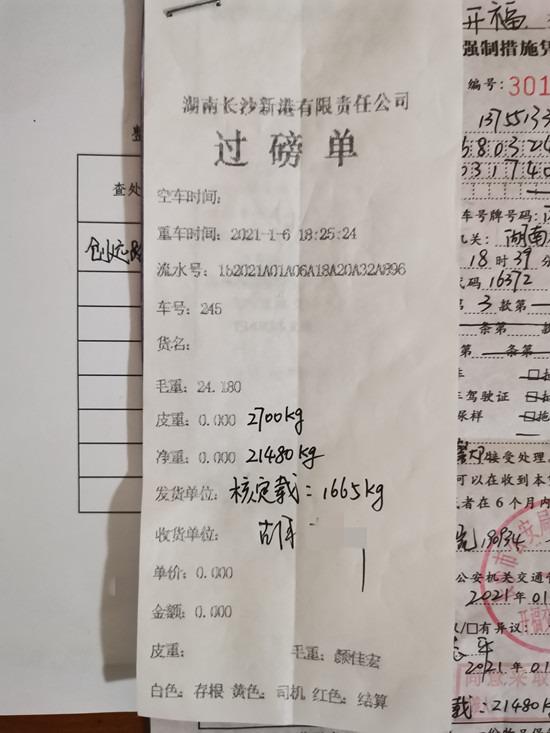 湖南长沙新港有限责任公司
过磅单
空车时间:
重车时间: 2021-1-6 18:25:24
流水号: 1b2021A01A06A18A20A32A896
车号: 245
货名:
毛重: 24.180
皮重: 0.000 2700kg
净重: 0.000 21480kg
发货单位: 核定载: 1665kg
收货单位:
单价: 0.000
金额: 0.000
皮重: 毛重: 颜佳宏
白色: 存根 黄色: 司机 红色: 结算
查处
开福
强制措施凭
编号: 301
1375513
68032
03174
车号牌号码:
机关: 湖南
18时39分
代码 16372
第 3 款第
条第
第 条第
车驾驶证
保样
接受处理。
可以在收到本
者在6个月内
190934
公安机关交通
2021年01
以/口有异议:
2021年01
载: 21480k